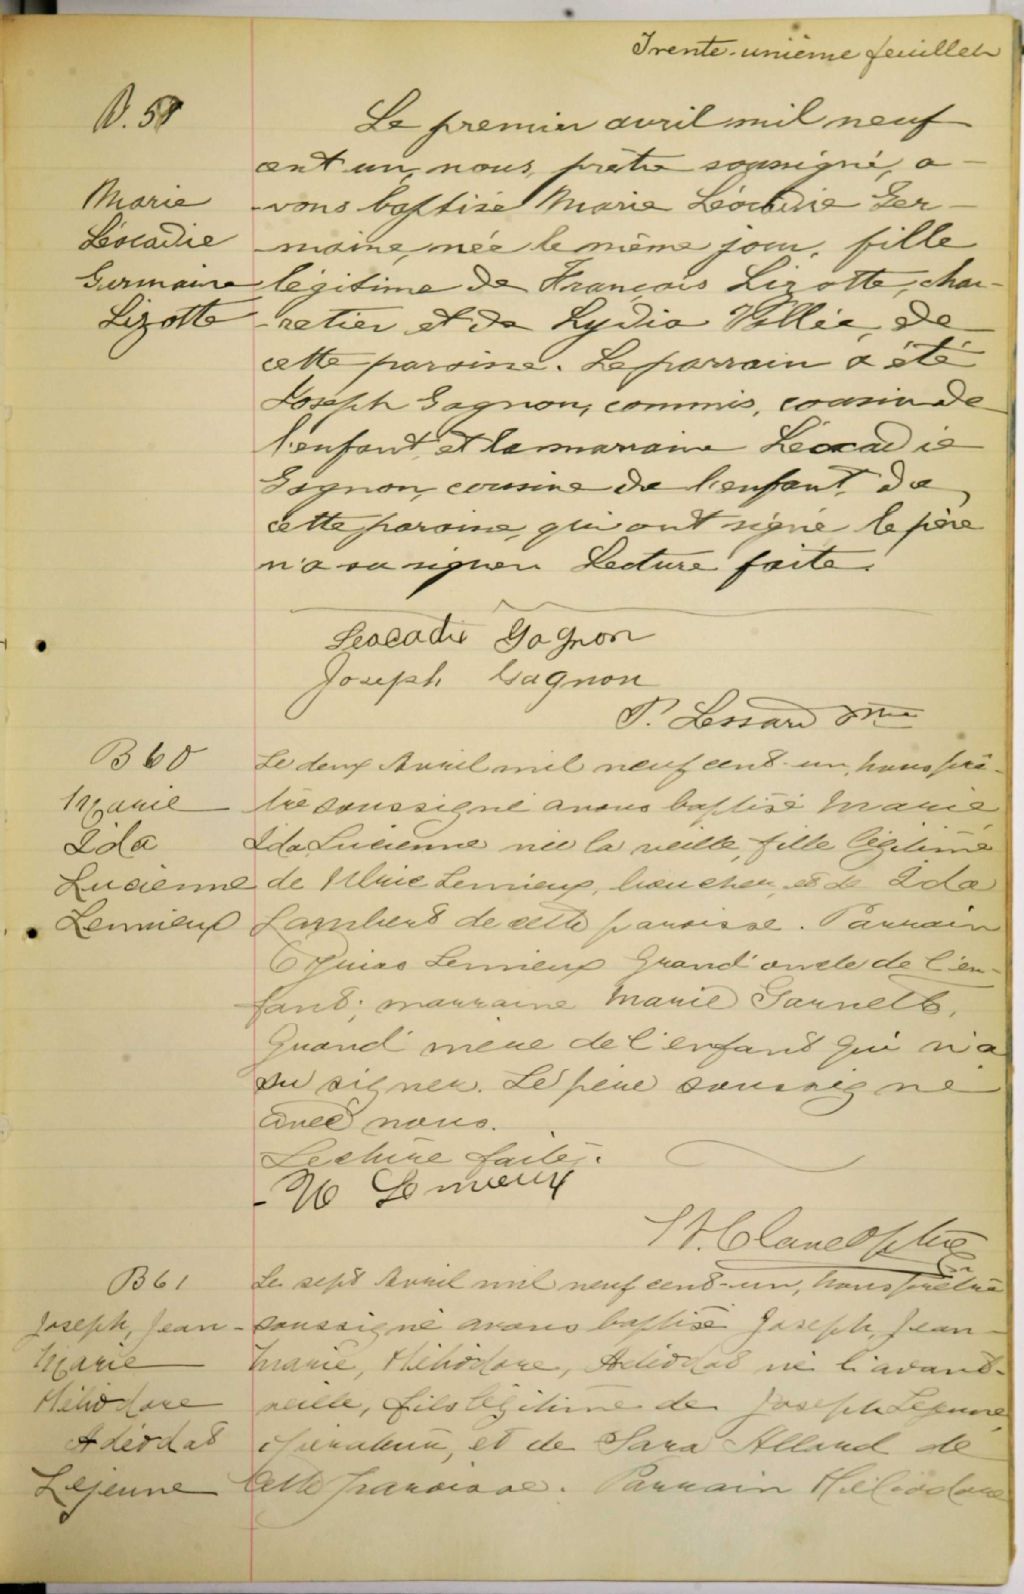 Trente-unième feuillet
B. 59
Le premier avril mil neuf
cent un, nous, prêtre soussigné, a-
Marie
-vons baptisé Marie Léocadie Ger-
Léocadie
-maine, née le même jour, fille
Germaine
légitime de François Lizotte, char-
Lizotte
-retier et de Lydia Vallée, de
cette paroisse. Le parrain a été
Joseph Gagnon, commis, cousin de
l'enfant, et la marraine Léocadie
Gagnon, cousine de l'enfant, de
cette paroisse, qui ont signé le père
n'a su signer. Lecture faite.
Leocadie Gagnon
Joseph Gagnon
P. Lessard
B 60
Le deux Avril mil neuf cent-un, nous prê-
Marie
tre soussigné avons baptisé Marie,
Ida
Ida, Lucienne née la veille, fille légitime
Lucienne
de Ulric Lemieux, boucher, et de Ida
Lemieux
Lambert de cette paroisse. Parrain
Lemieux Grand'oncle de l'en-
fant; marraine Marie
Grand'mère de l'enfant qui n'a
su signer. Le père soussigné
avec nous.
Lecture faite.
U Lemieux
B 61
Le sept Avril mil neuf cent-un, nous prêtre
Joseph, Jean-
soussigné avons baptisé Joseph, Jean-
Marie
Marie, Héliodore, Adéodat né l'avant-
Héliodore
veille, fils légitime de Joseph Lejeune,
Adéodat
et de Sara Allard de
Lejeune
cette paroisse. Parrain Héliodore